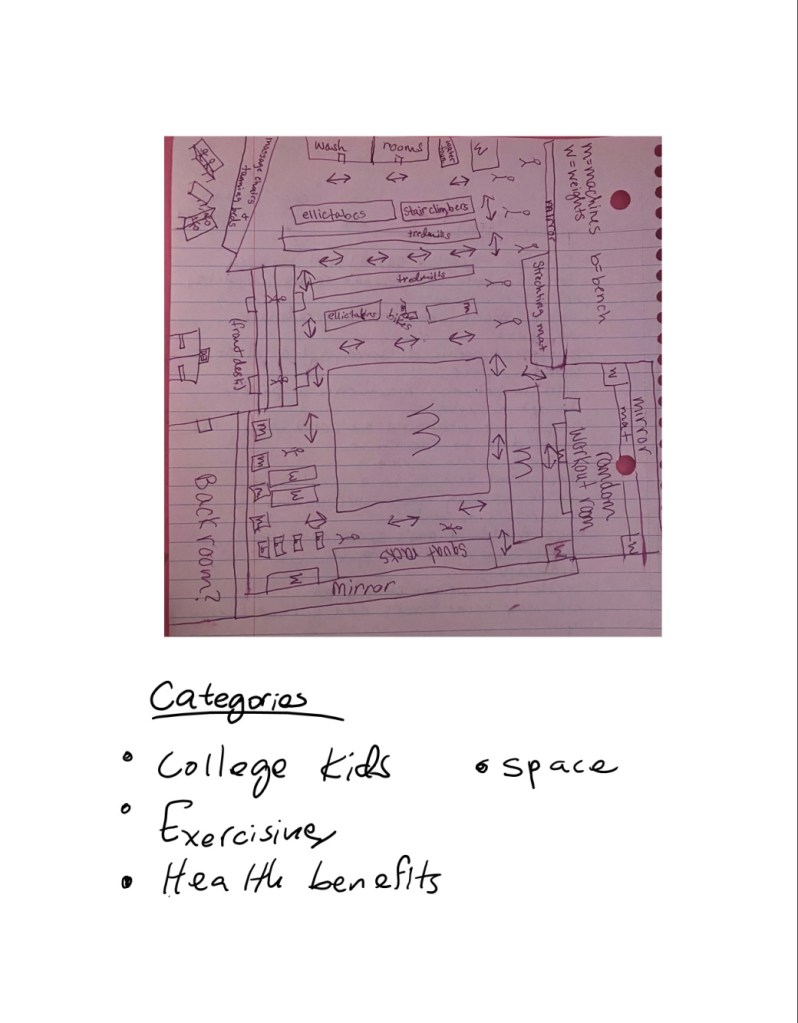 wash
rooms
water
M
m=machines b=bench
w=weights
massage chairs &
tanning beds
mirror
ellictabcs
Stair climbers
tredmills
tredmills
Streching mat
ellictabcs
bikes
M
(front desk)
M
M
mirror
mat
random
workout room
M
M
M
M
M
M
M
M
squat racks
M
M
mirror
Back room?
Categories
• College kids • space
• Exercising
• Health benefits